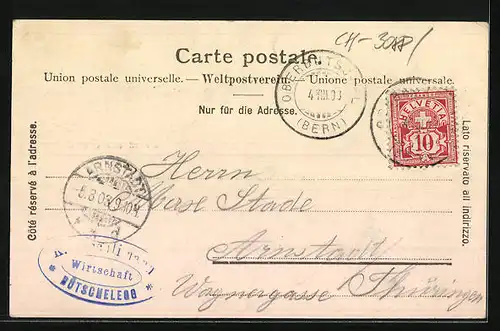 CH-3088/
Carte postale.
Union postale universelle. — Weltpostverein. — Unione postale universale.
Nur für die Adresse.
Côté réservé à l'adresse.
Lato riservato all indirizzo.
4.VIII.03
(BERN)
HELVETIA
10
ARNSTADT
5.8.03.9-10V.
Wirtschaft
* BÜTSCHELEGG *
Herrn
Stade
Arnstadt
Wagnergasse Thüringen